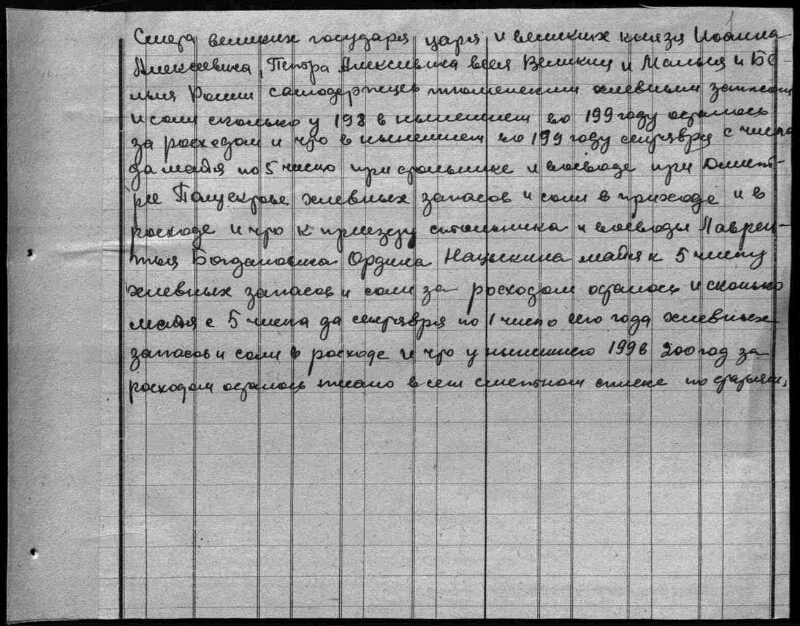 Смета великих государя царя и великих князя Иоанна
Алексеевича, Петра Алексеевича всея Великия и Малыя и Бе-
лыя России самодержцев тюменским хлебным запасом
и соли сколько у 198 в нынешнем во 199 году осталось
за росходом и что в нынешнем во 199 году сентября с числа
да майя по 5 число при стольнике и воеводе при Дмит-
рее Полуектове хлебных запасов и соли в приходе и в
росходе и что к приезду стольника и воеводы Лаврен-
тья Богдановича Ордина Нащекина майя к 5 числу
хлебных запасов и соли за росходом осталось и сколько
майя с 5 числа да сентября по 1 число сего года хлебных
запасов и соли в росходе и что у нынешнего 199 в 200 год за
росходом осталось писано в сем сметном списке по статьям,